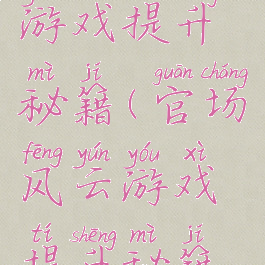 游戏提升
mì jí guān chǎng
秘籍(官场
fēng yún yóu xì
风云游戏
tí shēng mì jí
提升秘籍